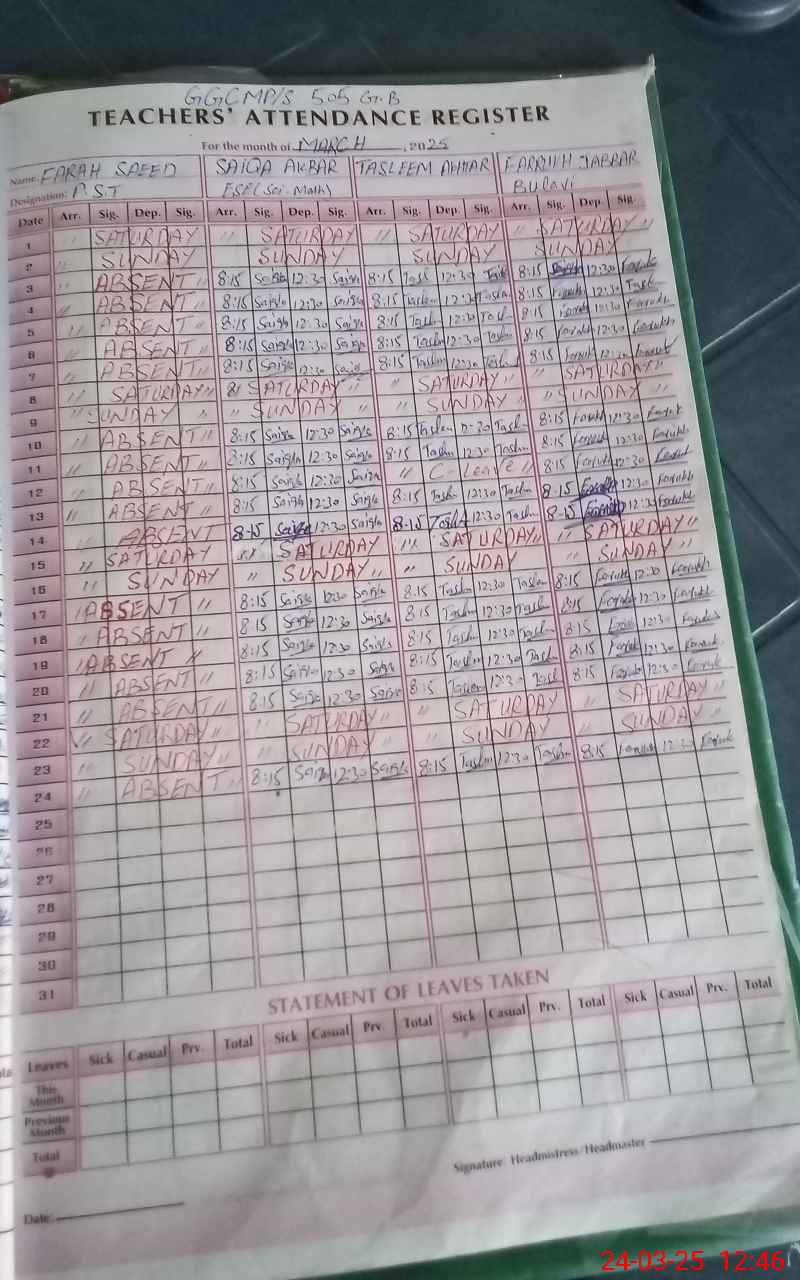 GGCMP/S 505 G.B
TEACHERS' ATTENDANCE REGISTER
For the month of MARCH, 2025
Name: FARAH SAEED SAIQA AKBAR TASLEEM AKHTAR FARRUKH JABBAR
Designation: P.S.T ESE(Sci-Math) Bulavi
Date Arr. Sig. Dep. Sig. Arr. Sig. Dep. Sig. Arr. Sig. Dep. Sig. Arr. Sig. Dep. Sig.
1 " SATURDAY " SATURDAY " SATURDAY " SATURDAY "
2 " SUNDAY SUNDAY SUNDAY SUNDAY
3 " ABSENT " 8:15 Saiqa 12:30 Saiqa 8:15 Tasl 12:30 8:15 12:30 Farukh
4 " ABSENT " 8:15 Saiqa 12:30 Saiqa 8:15 Taslm 12:30 Taslm 8:15 Farukh 12:30
5 " ABSENT " 8:15 Saiqa 12:30 Saiqa 8:15 Taslm 12:30 Tasl 8:15 Farukh 12:30 Farukh
6 " ABSENT " 8:15 Saiqa 12:30 Saiqa 8:15 Taslm 12:30 Taslm 8:15 Farukh 12:30 Farukh
7 " ABSENT " 8:15 Saiqa 12:30 Saiqa 8:15 Taslm 12:30 Taslm 8:15 Farukh 12:30 Farukh
8 SATURDAY " SATURDAY " " SATURDAY " " SATURDAY "
9 " SUNDAY " " SUNDAY " " SUNDAY " " SUNDAY "
10 " ABSENT " 8:15 Saiqa 12:30 Saiqa 8:15 Taslm 12:30 Taslm 8:15 Farukh 12:30 Farukh
11 " ABSENT " 8:15 Saiqa 12:30 Saiqa 8:15 Taslm 12:30 Taslm 8:15 Farukh 12:30 Farukh
12 " ABSENT " 8:15 Saiqa 12:30 Saiqa " C-Leave " 8:15 Farukh 12:30 Farukh
13 " ABSENT " 8:15 Saiqa 12:30 Saiqa 8:15 Taslm 12:30 Taslm 8:15 Farukh 12:30 Farukh
14 " ABSENT 8:15 Saiqa 12:30 Saiqa 8:15 Taslm 12:30 Taslm 8:15 Farukh 12:30 Farukh
15 " SATURDAY " SATURDAY " SATURDAY " " SATURDAY "
16 " SUNDAY " SUNDAY " " SUNDAY " SUNDAY "
17 " ABSENT " 8:15 Saiqa 12:30 Saiqa 8:15 Taslm 12:30 Taslm 8:15 Farukh 12:30 Farukh
18 " ABSENT " 8:15 Saiqa 12:30 Saiqa 8:15 Taslm 12:30 Taslm 8:15 Farukh 12:30 Farukh
19 " ABSENT " 8:15 Saiqa 12:30 Saiqa 8:15 Taslm 12:30 Taslm 8:15 12:30 Farukh
20 " ABSENT " 8:15 Saiqa 12:30 Saiqa 8:15 Taslm 12:30 Tasl 8:15 Farukh 12:30 Farukh
21 " ABSENT " 8:15 Saiqa 12:30 Saiqa 8:15 Taslm 12:30 Tasl 8:15 Farukh 12:30 Farukh
22 " SATURDAY " " SATURDAY " " SATURDAY " " SATURDAY "
23 SUNDAY " " SUNDAY " SUNDAY " SUNDAY "
24 " ABSENT " 8:15 Saiqa 12:30 Saiqa 8:15 Taslm 12:30 Taslm 8:15 Farukh 12:30 Farukh
25
26
27
28
29
30
31
STATEMENT OF LEAVES TAKEN
Leaves Sick Casual Prv. Total Sick Casual Prv Total Sick Casual Prv. Total Sick Casual Prv. Total
This Month
Previous Month
Total
Signature Headmistress/Headmaster
Date:
24-03-25 12:46